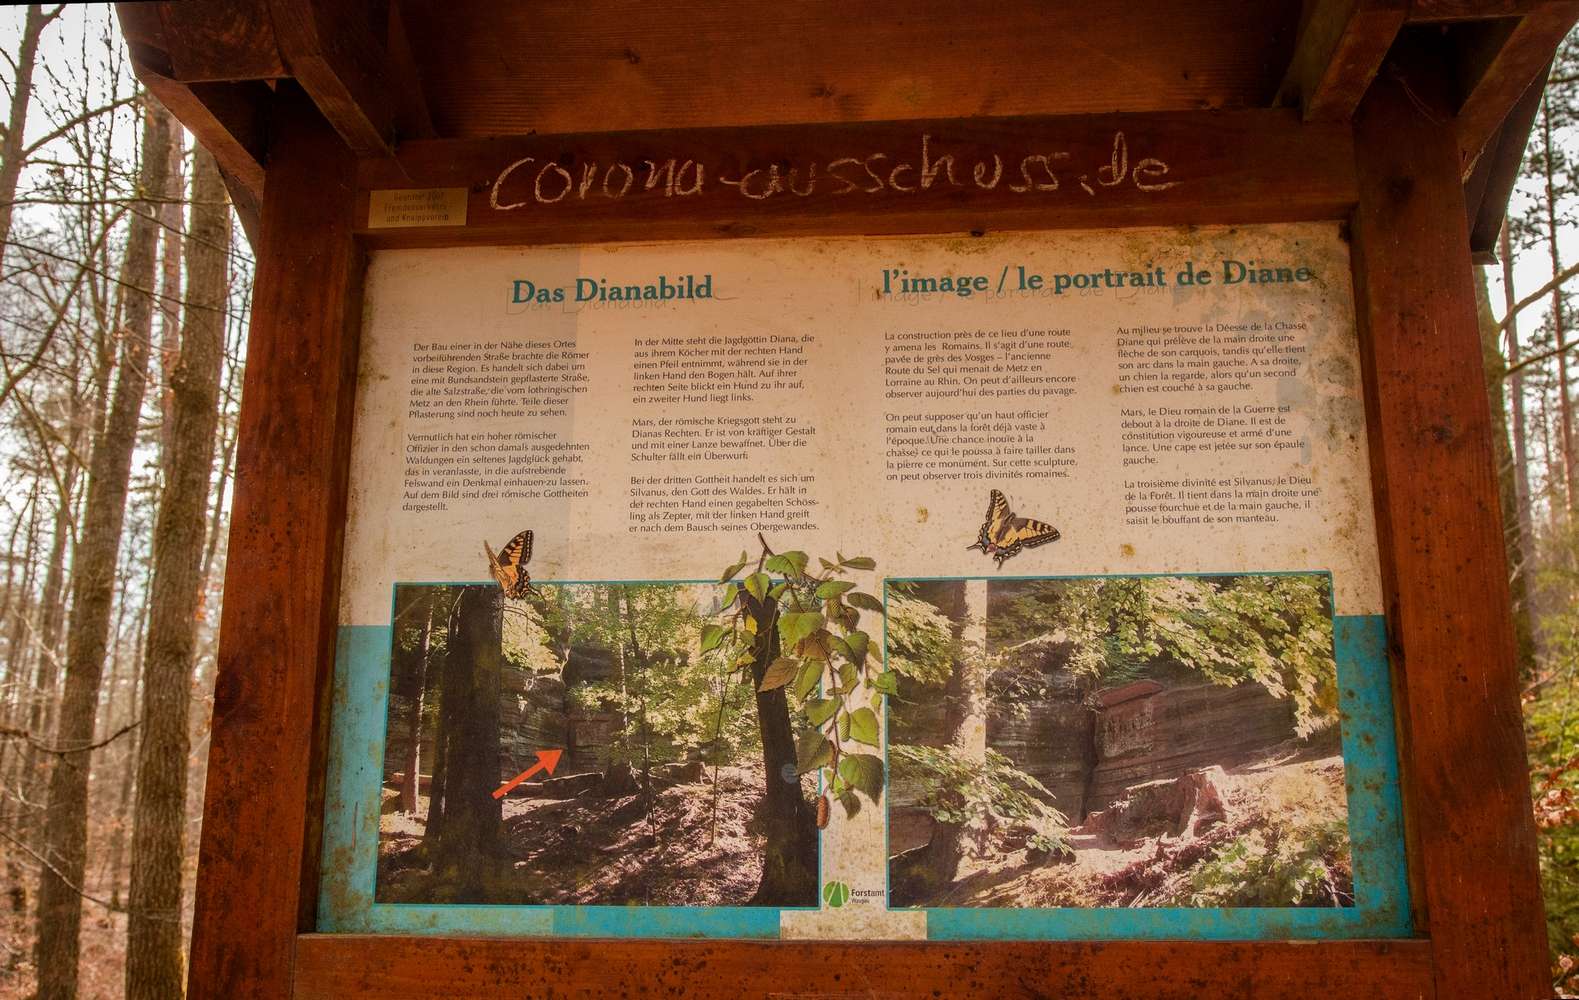 corona-ausschuss.de
Fremdenverkehrs-
und Kneippverein
Das Dianabild
Der Bau einer in der Nähe dieses Ortes
vorbeiführenden Straße brachte die Römer
in diese Region. Es handelt sich dabei um
eine mit Bundsandstein gepflasterte Straße,
die alte Salzstraße, die vom lothringischen
Metz an den Rhein führte. Teile dieser
Pflasterung sind noch heute zu sehen.
Vermutlich hat ein hoher römischer
Offizier in den schon damals ausgedehnten
Waldungen ein seltenes Jagdglück gehabt,
das in veranlasste, in die aufstrebende
Felswand ein Denkmal einhauen zu lassen.
Auf dem Bild sind drei römische Gottheiten
dargestellt.
In der Mitte steht die Jagdgöttin Diana, die
aus ihrem Köcher mit der rechten Hand
einen Pfeil entnimmt, während sie in der
linken Hand den Bogen hält. Auf ihrer
rechten Seite blickt ein Hund zu ihr auf,
ein zweiter Hund liegt links.
Mars, der römische Kriegsgott steht zu
Dianas Rechten. Er ist von kräftiger Gestalt
und mit einer Lanze bewaffnet. Über die
Schulter fällt ein Überwurf.
Bei der dritten Gottheit handelt es sich um
Silvanus, den Gott des Waldes. Er hält in
der rechten Hand einen gegabelten Schöss-
ling als Zepter, mit der linken Hand greift
er nach dem Bausch seines Obergewandes.
l'image / le portrait de Diane
La construction près de ce lieu d'une route
y amena les Romains. Il s'agit d'une route
pavée de grès des Vosges – l'ancienne
Route du Sel qui menait de Metz en
Lorraine au Rhin. On peut d'ailleurs encore
observer aujourd'hui des parties du pavage.
On peut supposer qu'un haut officier
romain eut dans la forêt déjà vaste à
l'époque (Une chance inouïe à la
chasse) ce qui le poussa à faire tailler dans
la pierre ce monument. Sur cette sculpture,
on peut observer trois divinités romaines.
Au milieu se trouve la Déesse de la Chasse
Diane qui prélève de la main droite une
flèche de son carquois, tandis qu'elle tient
son arc dans la main gauche. A sa droite,
un chien la regarde, alors qu'un second
chien est couché à sa gauche.
Mars, le Dieu romain de la Guerre est
debout à la droite de Diane. Il est de
constitution vigoureuse et armé d'une
lance. Une cape est jetée sur son épaule
gauche.
La troisième divinité est Silvanus, le Dieu
de la Forêt. Il tient dans la main droite une
pousse fourchue et de la main gauche, il
saisit le bouffant de son manteau.
Forstamt